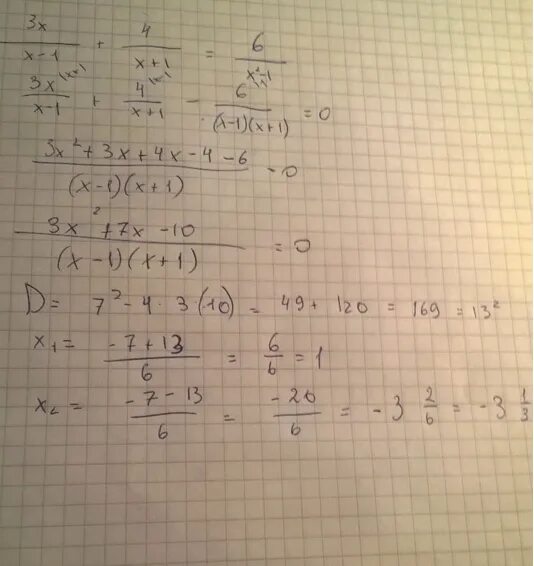 3x/(x-1) + 4/(x+1) = 6/(x²-1)
3x/(x-1) + 4/(x+1) - 6/((x-1)(x+1)) = 0
(3x²+3x+4x-4-6)/((x-1)(x+1)) - 0
(3x²+7x-10)/((x-1)(x+1)) = 0
D = 7² - 4·3(10) = 49 + 120 = 169 = 13²
x₁ = (-7+13)/6 = 6/6 = 1
x₂ = (-7-13)/6 = -20/6 = -3 2/6 = -3 1/3